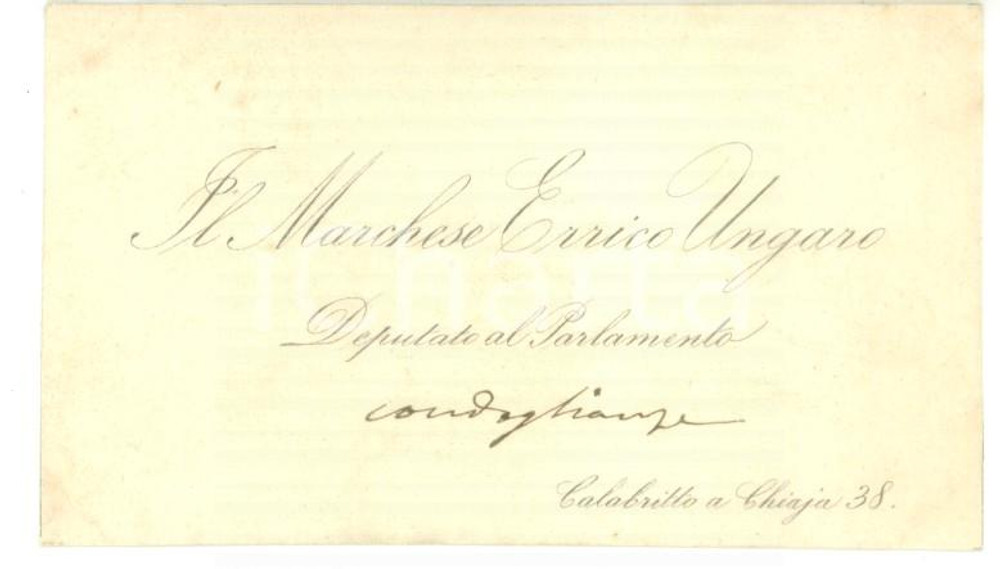 Il Marchese Errico Ungaro
Deputato al Parlamento
condoglianze
Calabritto a Chiaja 38.